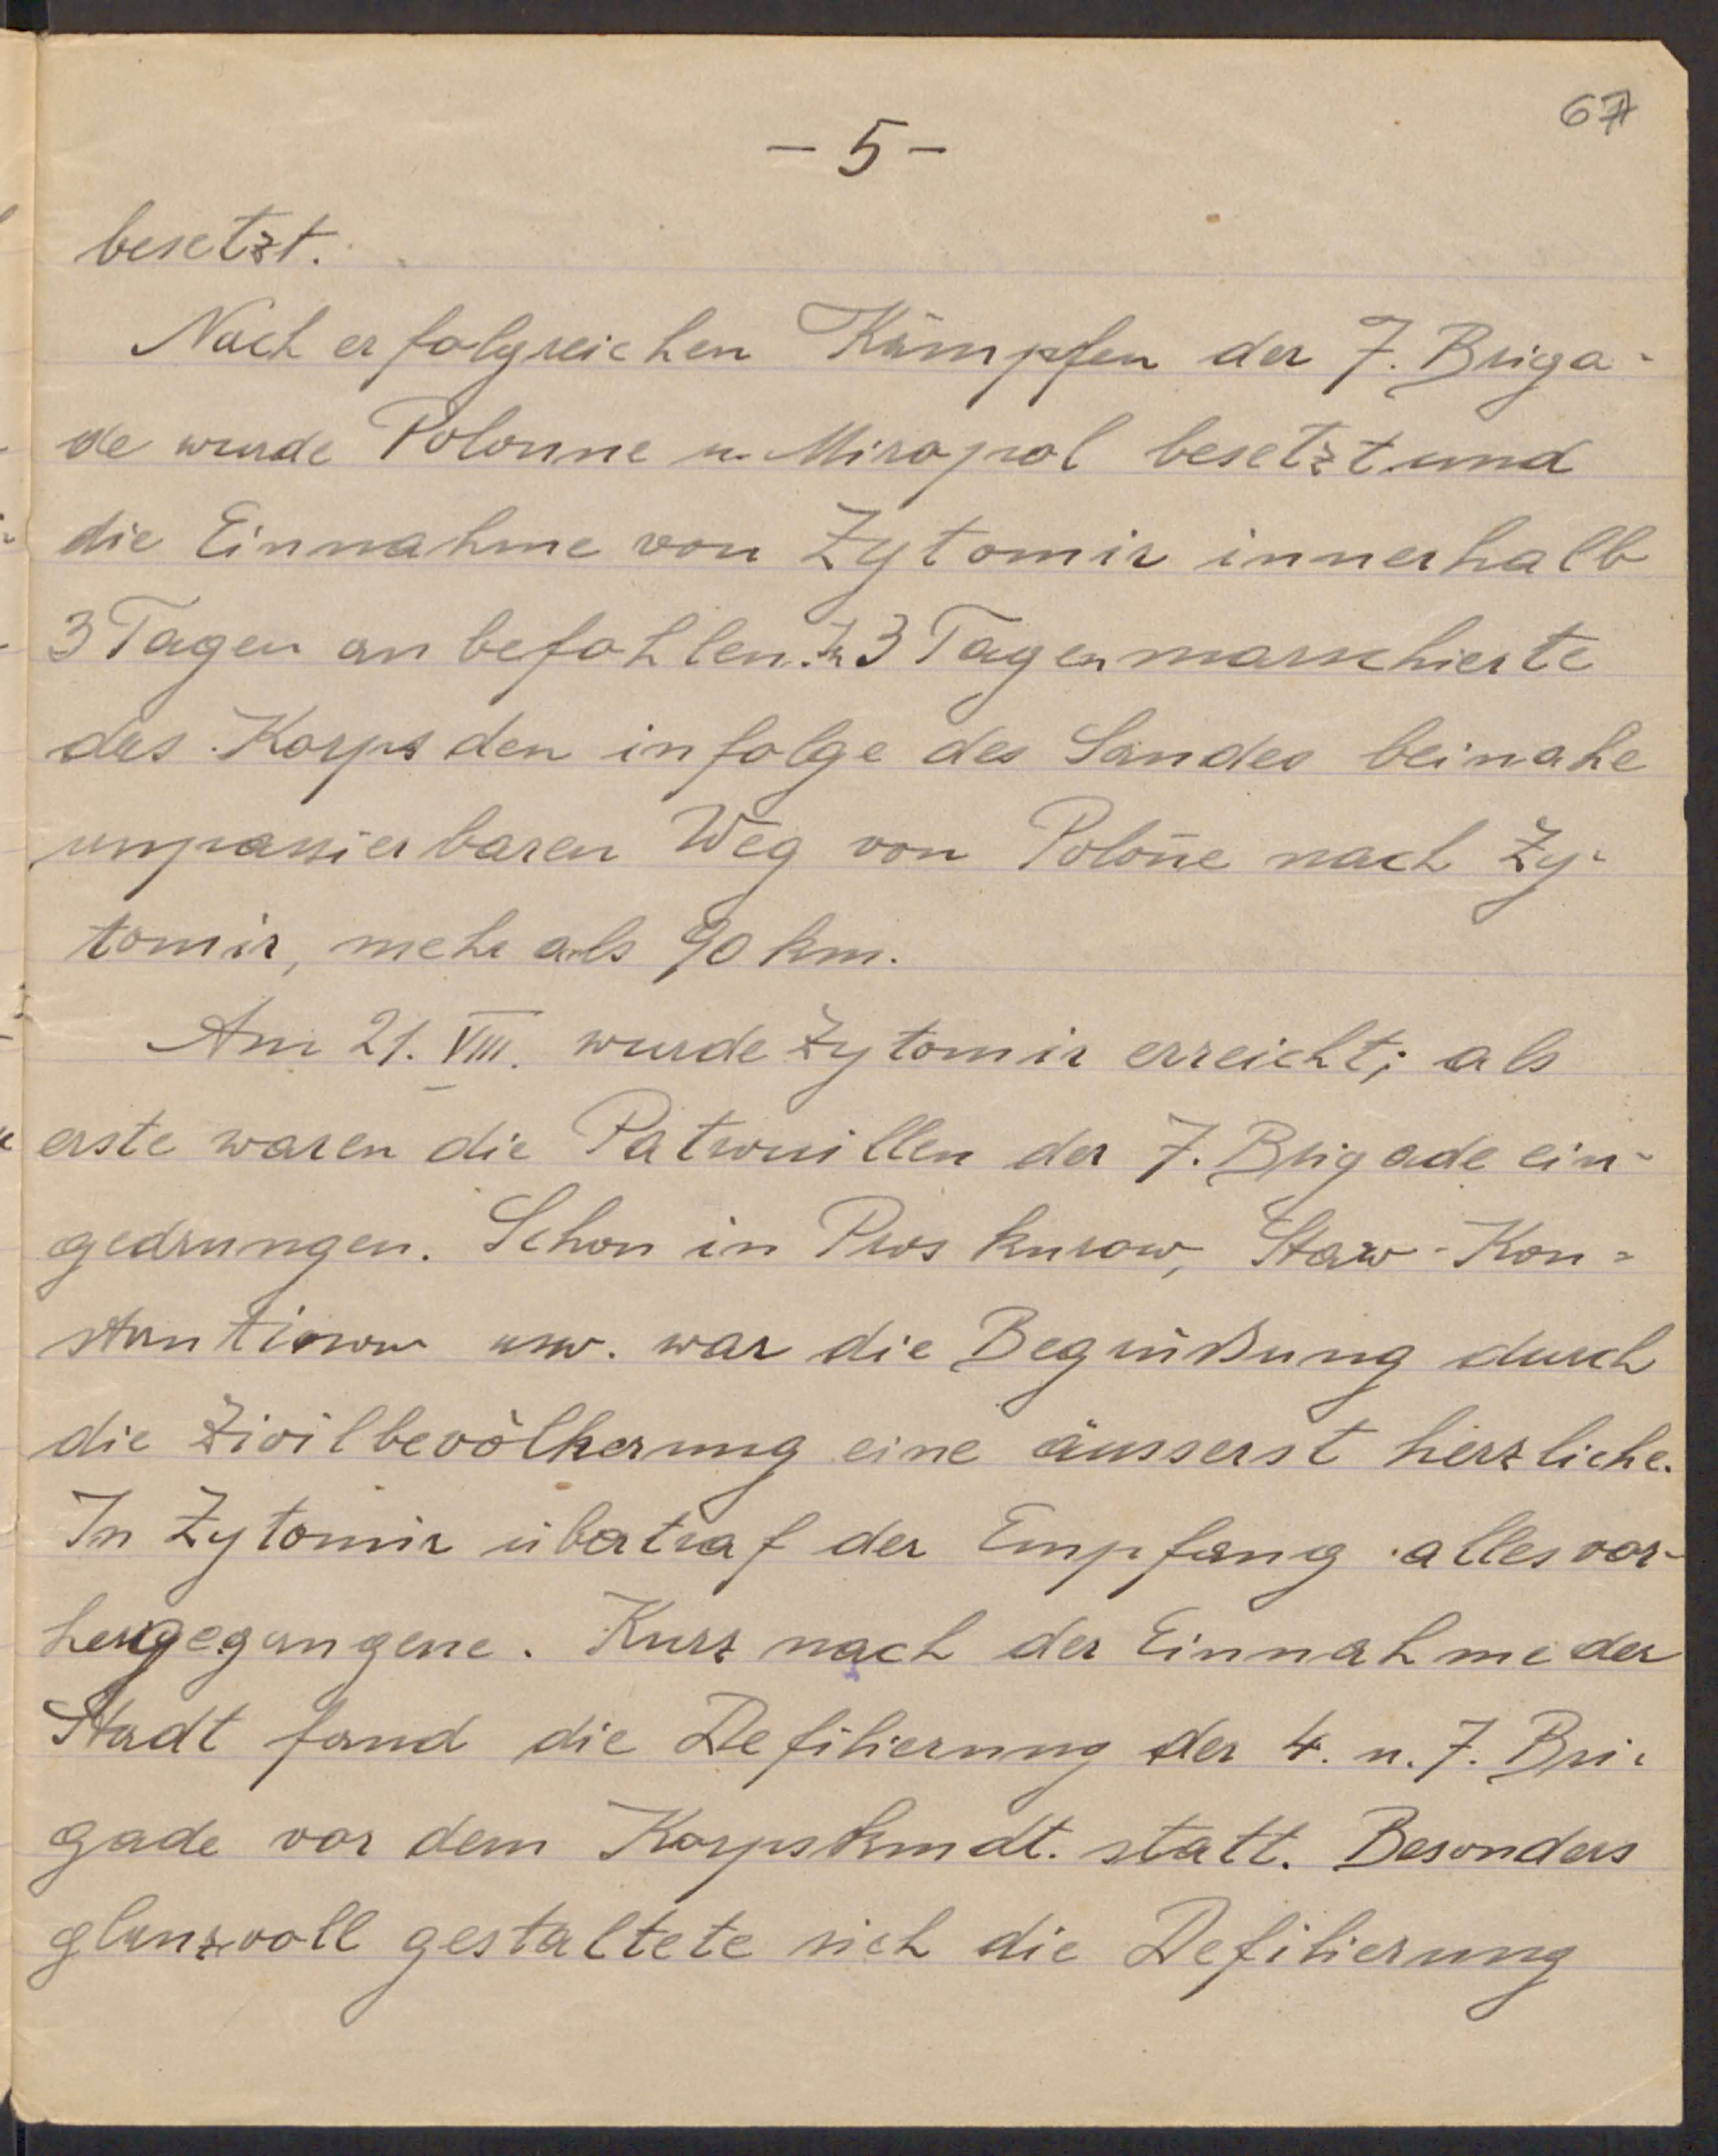 67
- 5 -
besetzt.
Nach erfolgreichen Kämpfen der 7. Briga-
de wurde Polonne u. Miropol besetzt und
die Einnahme von Zytomir innerhalb
3 Tagen anbefohlen. In 3 Tagen marschierte
das Korps den infolge des Sandes beinahe
unpassierbaren Weg von Polon̄e nach Zy-
tomir, mehr als 90 km.
Am 21. VIII. wurde Zytomir erreicht; als
erste waren die Patrouillen der 7. Brigade ein-
gedrungen. Schon in Proskurow, Staro-Kon-
stantinow usw. war die Begrüßung durch
die Zivilbevölkerung eine äusserst herzliche.
In Zytomir übertraf der Empfang alles vor-
hergegangene. Kurz nach der Einnahme der
Stadt fand die Defilierung der 4. u. 7. Bri-
gade vor dem Korpskmdt. statt. Besonders
glanzvoll gestaltete sich die Defilierung